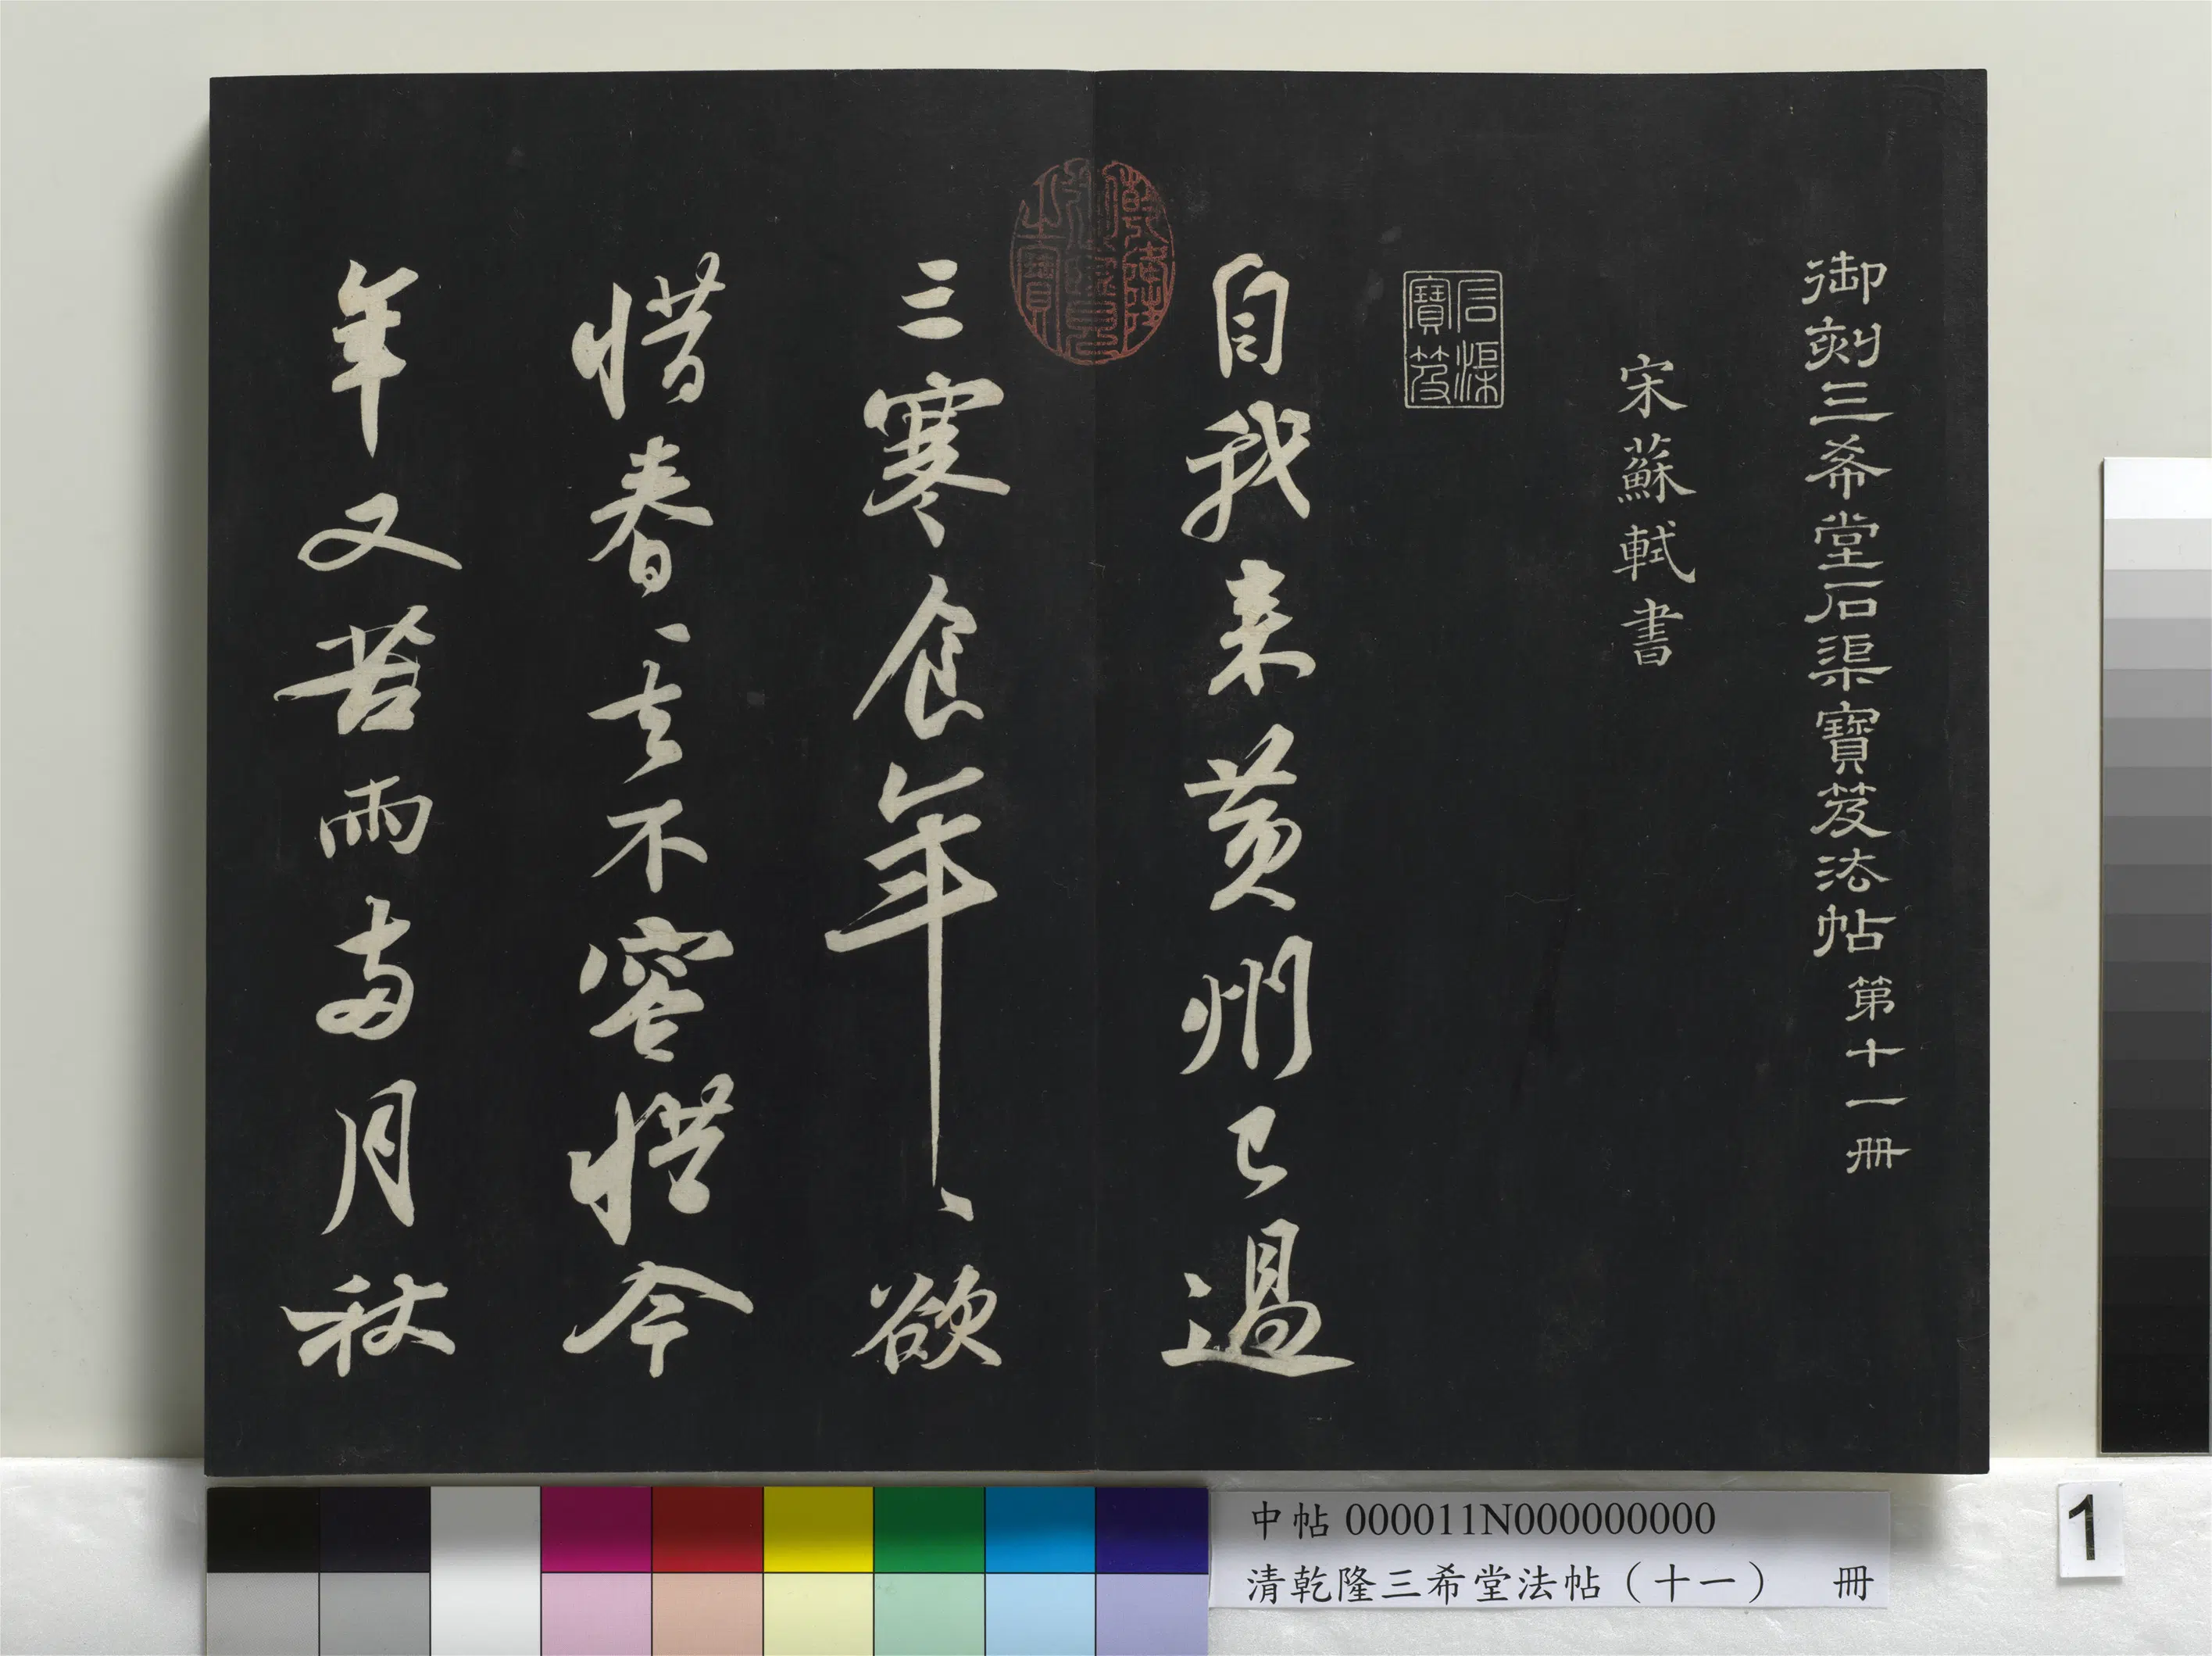 御刻三希堂石渠寶笈法帖 第十一冊
宋蘇軾書
石渠寶笈
自我来黄州已過
三寒食年〻欲
惜春〻去不容惜今
年又苦雨兩月秋
乾隆御覽之寶
中帖 000011N000000000
清乾隆三希堂法帖（十一） 冊
1